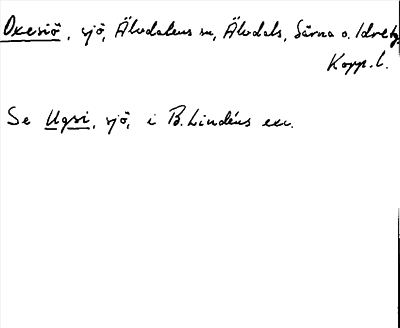 Oxesiö, sjö, Älvdalens sn, Älvdals, Särna o. Idre tg.
Kopp. l.
Se Ugsi, sjö, i B. Lindéns exc.